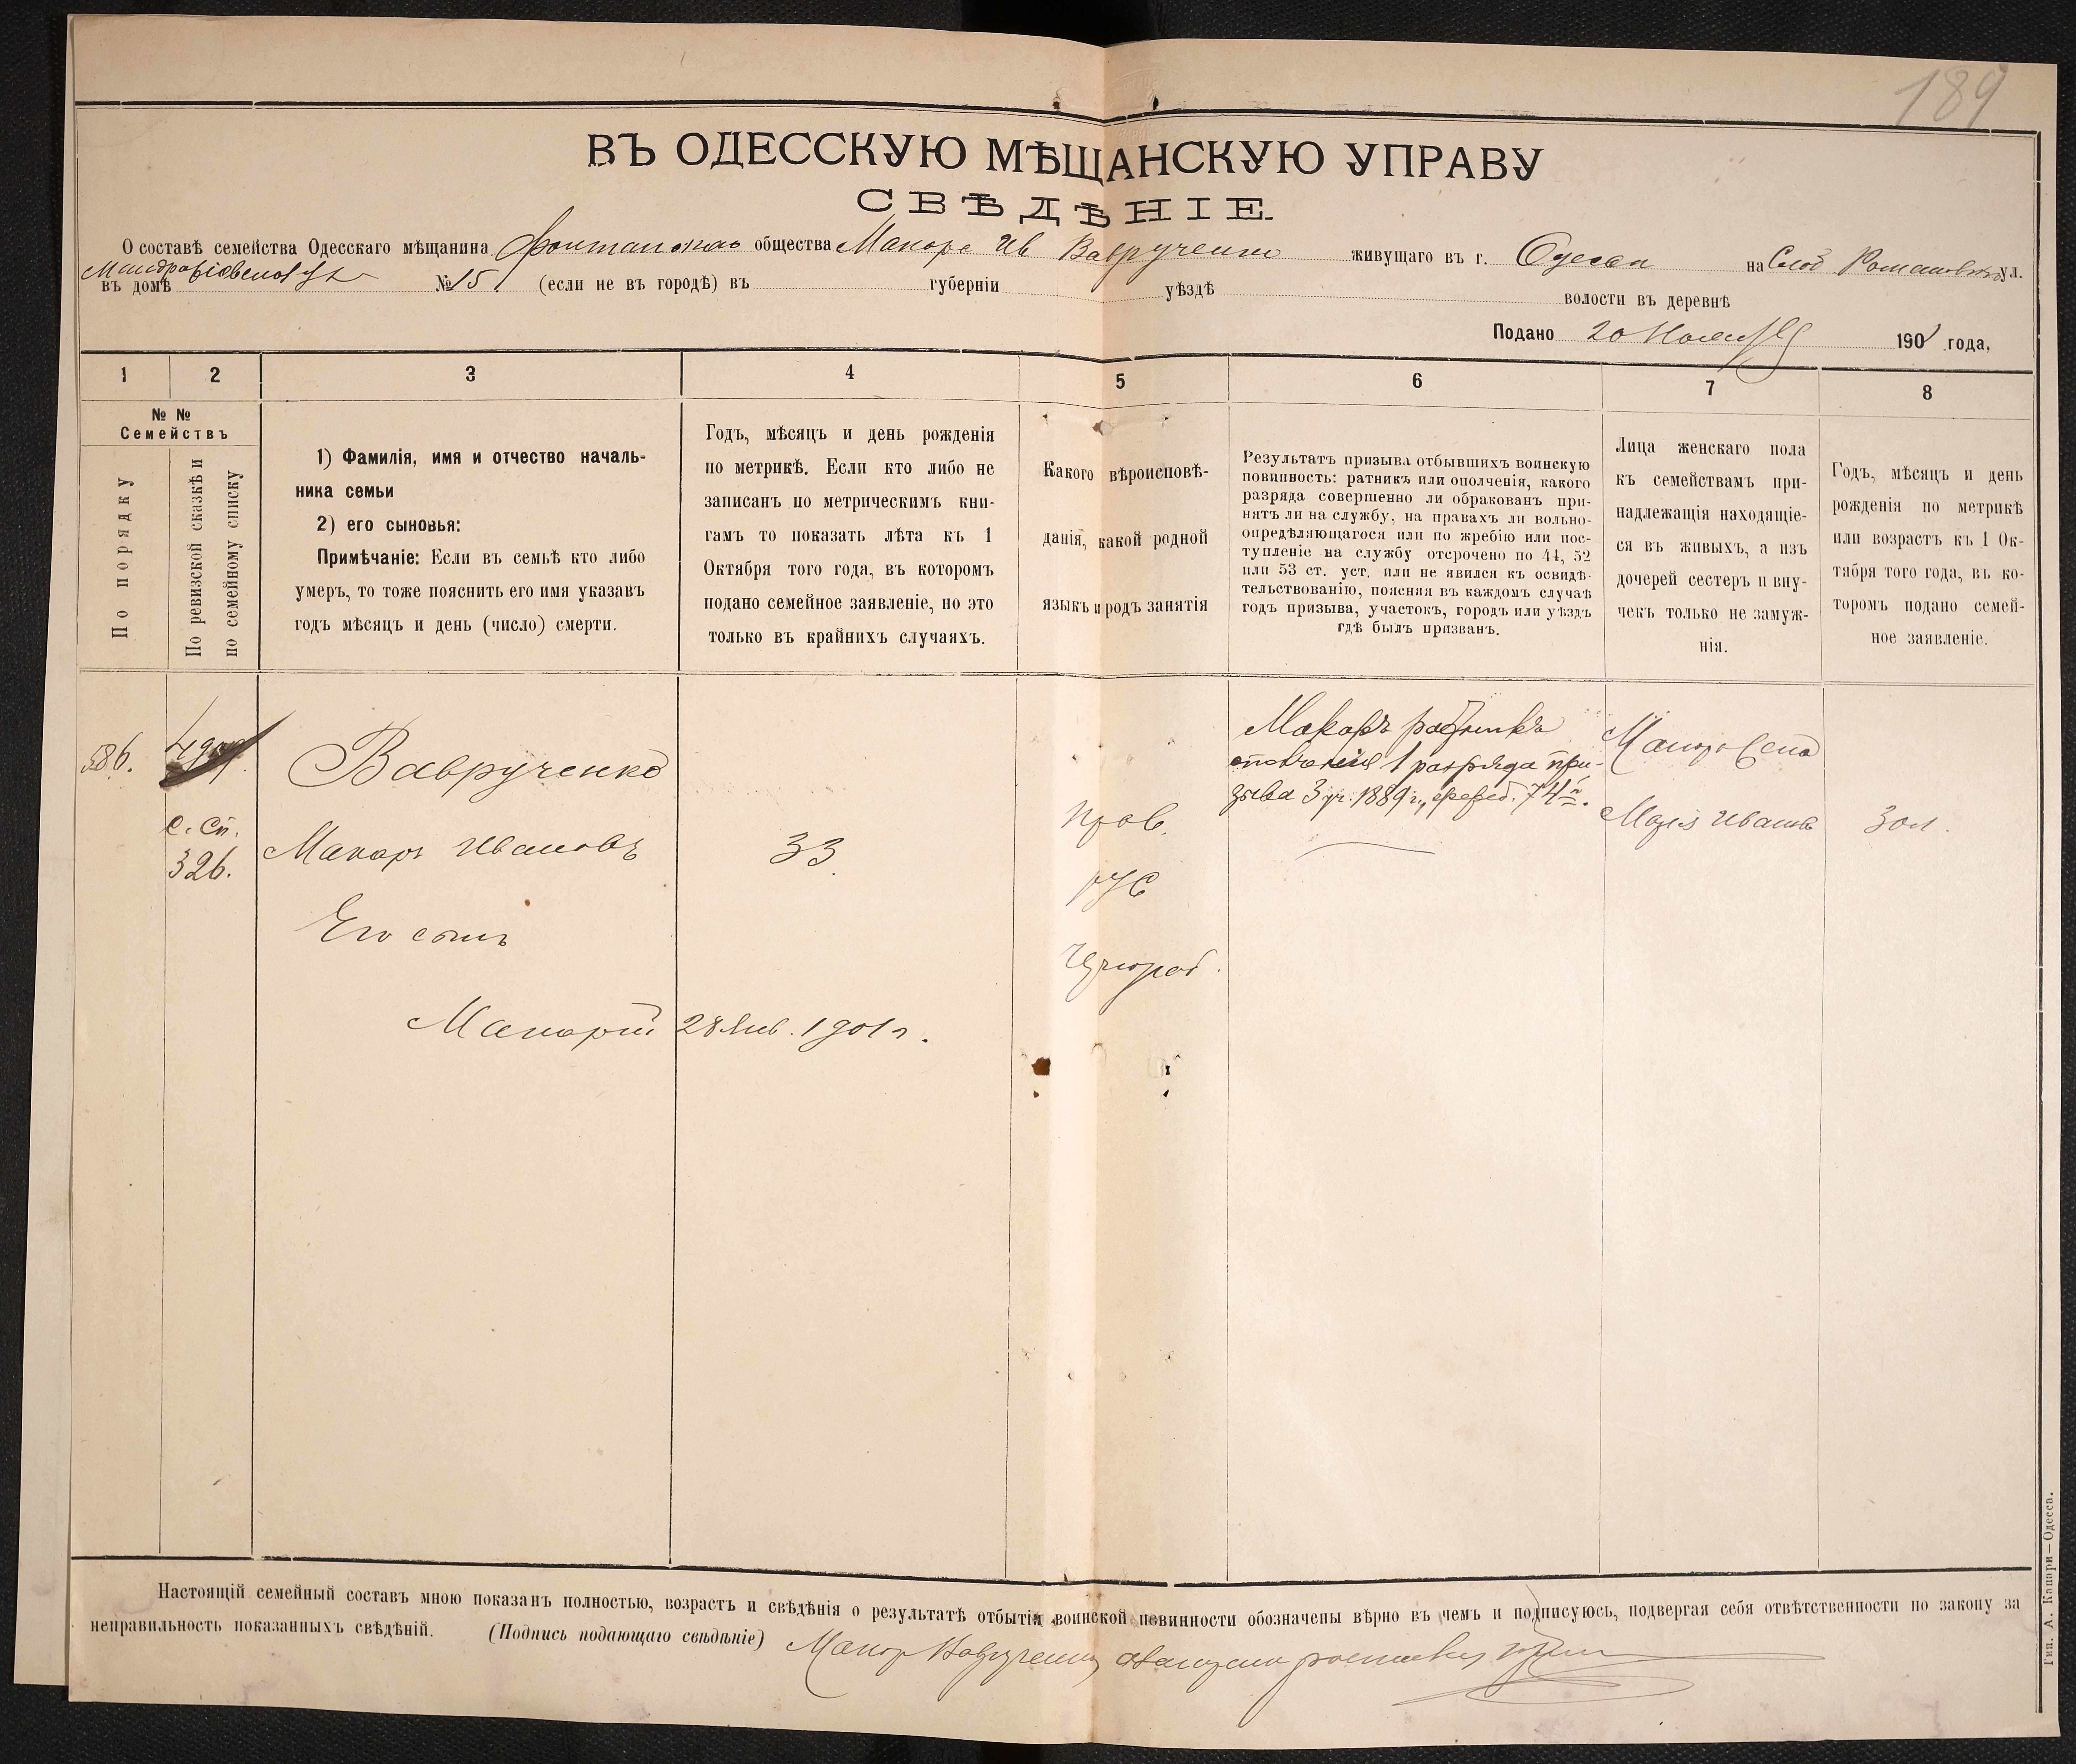 189
ВЪ ОДЕССКУЮ МѢЩАНСКУЮ УПРАВУ
СВѢДѢНІЕ
О составѣ семейства Одесскаго мѣщанина Фонтанскаго общества Макара Ив Ваврученко живущаго въ г. Одессѣ на Слоб Романовкѣ ул.
въ домѣ № 15 (если не въ городѣ) въ губерніи уѣздѣ волости въ деревнѣ
Подано 20 Ноября 190 года,
1 2 3 4 5 6 7 8
№ № Семействъ
По порядку
По ревизской сказкѣ и
по семейному списку
1) Фамилія, имя и отчество началь-
ника семьи
2) его сыновья:
Примѣчаніе: Если въ семьѣ кто либо
умеръ, то тоже пояснить его имя указавъ
годъ мѣсяцъ и день (число) смерти.
Годъ, мѣсяцъ и день рожденія
по метрикѣ. Если кто либо не
записанъ по метрическимъ кни-
гамъ то показать лѣта къ 1
Октября того года, въ которомъ
подано семейное заявленіе, но это
только въ крайнихъ случаяхъ.
Какого вѣроисповѣ-
данія, какой родной
языкъ и родъ занятія
Результатъ призыва отбывшихъ воинскую
повинность: ратникъ или ополченія, какого
разряда совершенно ли обракованъ при-
нятъ ли на службу, на правахъ ли вольно-
опредѣляющагося или по жребію или пос-
тупленіе на службу отсрочено по 44, 52
или 53 ст. уст. или не явился къ освидѣ-
тельствованію, поясняя въ каждомъ случаѣ
годъ призыва, участокъ, городъ или уѣздъ
гдѣ былъ призванъ.
Лица женскаго пола
къ семействамъ при-
надлежащія находящіе-
ся въ живыхъ, а изъ
дочерей сестеръ и вну-
чекъ только не замуж-
нія.
Годъ, мѣсяцъ и день
рожденія по метрикѣ
или возрастъ къ 1 Ок-
тября того года, въ ко-
торомъ подано семей-
ное заявленіе.
586.
с. сп.
326.
Вавручекко
Макаръ Ивановъ 33
Его сынъ
Макарій 28 Янв. 1901 г.
Прав.
рус
Чернораб.
Макаръ ратникъ
ополченія 1 разряда при-
зыва 3 уч. 1889 г., жереб. 74й.
Макара жена
Марія Иванов 30 л.
Настоящій семейный составъ мною показанъ полностью, возрастъ и свѣдѣнія о результатѣ отбытія воинской повинности обозначены вѣрно въ чемъ и подписуюсь, подвергая себя отвѣтственности по закону за
неправильность показанныхъ свѣдѣній. (Подпись подающаго свѣдѣніе) Макар Ваврученко
Тип. А. Капари—Одесса.